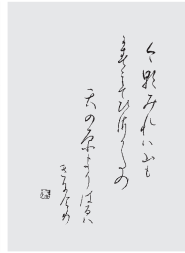 今朝みれは山も
かすみてひさかたの
天の原よりはるは
きにけり